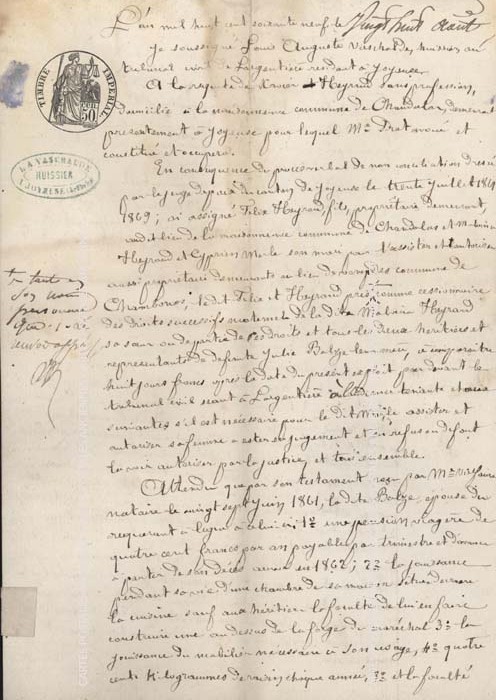 L'an mil huit cent soixante neuf le Vingt huit août
je soussigné Louis Auguste Vaschalde, huissier au
tribunal civil de Largentière résidant à Joyeuse
A la requête de Xavier Heyraud sans profession,
domicilié à la maisonneuve commune de Chandolas, demeurant
présentement à Joyeuse pour lequel Me avoué est
constitué et occupera.
En conséquence du procès verbal de non conciliation dressé
par le juge de paix du canton de Joyeuse le trente juillet
1869; ai assigné Félix Heyraud fils, propriétaire demeurant
au dit lieu de la maisonneuve commune de Chandolas et
Heyraud et Cyprien son mari pour l'assister et l'autoriser
aussi propriétaires demeurants au lieu de commune de
Chambonas; le dit Félix Heyraud pris comme cessionnaire
des droits successifs maternels de la dite Heyraud
sa soeur ou de partie de ses droits et tous les deux héritiers et
représentants de défunte Julie Balze leur mère, à comparaître
huit jours francs après la date du présent exploit par devant le
tribunal civil séant à Largentière audience tenante et
suivantes s'il est nécessaire pour le dit assister et
autoriser sa femme à ester en jugement et en refus ou défaut
la voir autoriser par la justice, et tous ensemble.
Attendu que par son testament reçu par Me
notaire le vingt sept juin 1861, la dite Balze, épouse du
requérant a légué à celui ci 1° une pension viagère de
quatre cent francs par an payable par trimestre et d'avance
à partir de son décès arrivé en 1862; 2° la jouissance
pendant sa vie d'une chambre de sa maison située derrière
la cuisine sauf aux héritiers la faculté de lui en faire
construire une au dessus de la forge de maréchal 3° la
jouissance du mobilier nécessaire à son usage, 4° quatre
cents kilogrammes de raisins chaque année, 5° et la faculté
TIMBRE IMPÉRIAL
50
LA VASCHALDE
HUISSIER
A JOYEUSE (Ardèche)